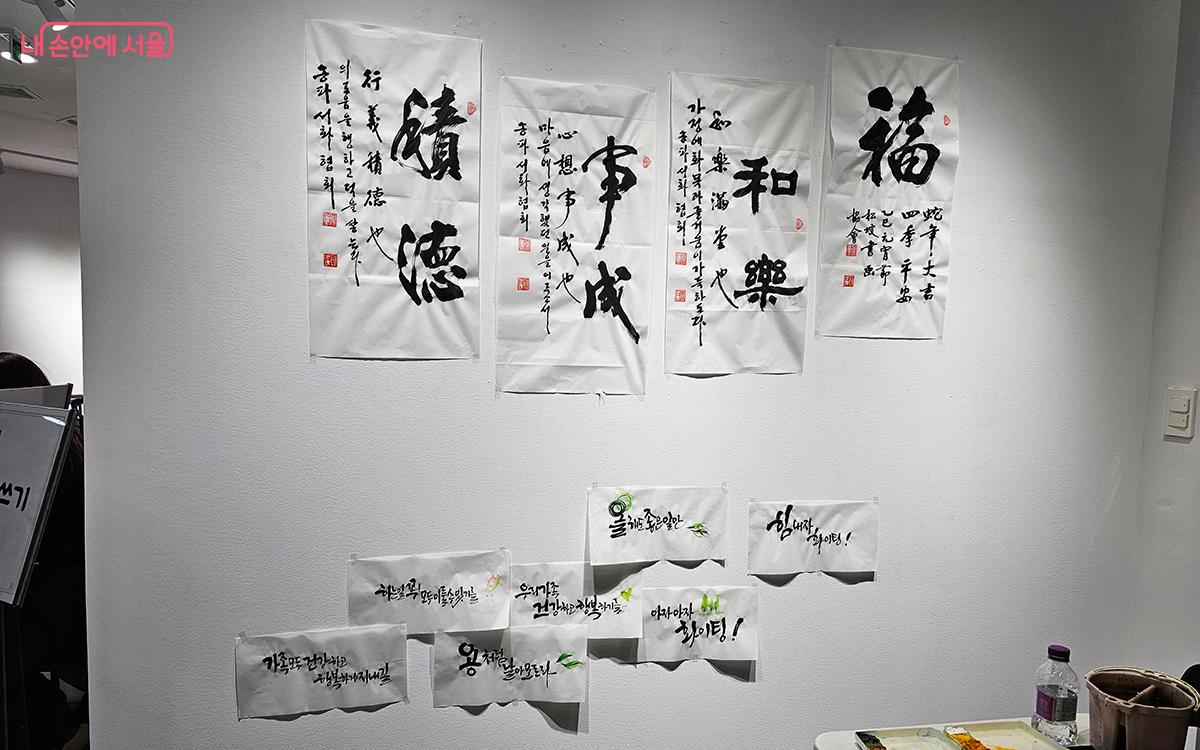 내 손안에 서울
積德
行義積德也
의로움을 행하고 덕을 쌓는다
송파서화협회
事成
心想事成也
마음에 생각했던 일을 이루소서
송파서화협회
和樂
和樂滿堂也
가정에 화목과 즐거움이 가득하도다
송파서화협회
福
蛇年大吉
四季平安
乙巳元宵節
松坡書畫
協會
쓰기
올해도 좋은일만
힘내자
화이팅!
하는일 꼭
모두 이룰수있기를
우리가족
건강하고 행복하기를
아자아자
화이팅!
가족모두 건강하고
행복하게 지내길
용처럼
날아오르다